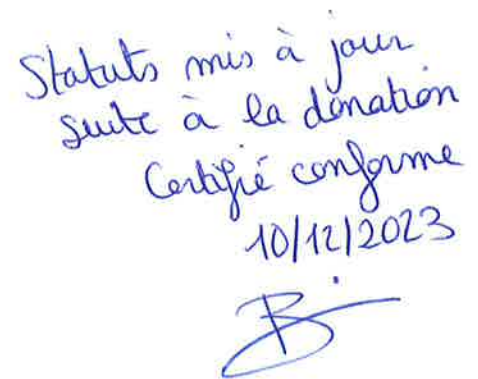 Statuts mis à jour
suite à la donation
Certifié conforme
10/12/2023